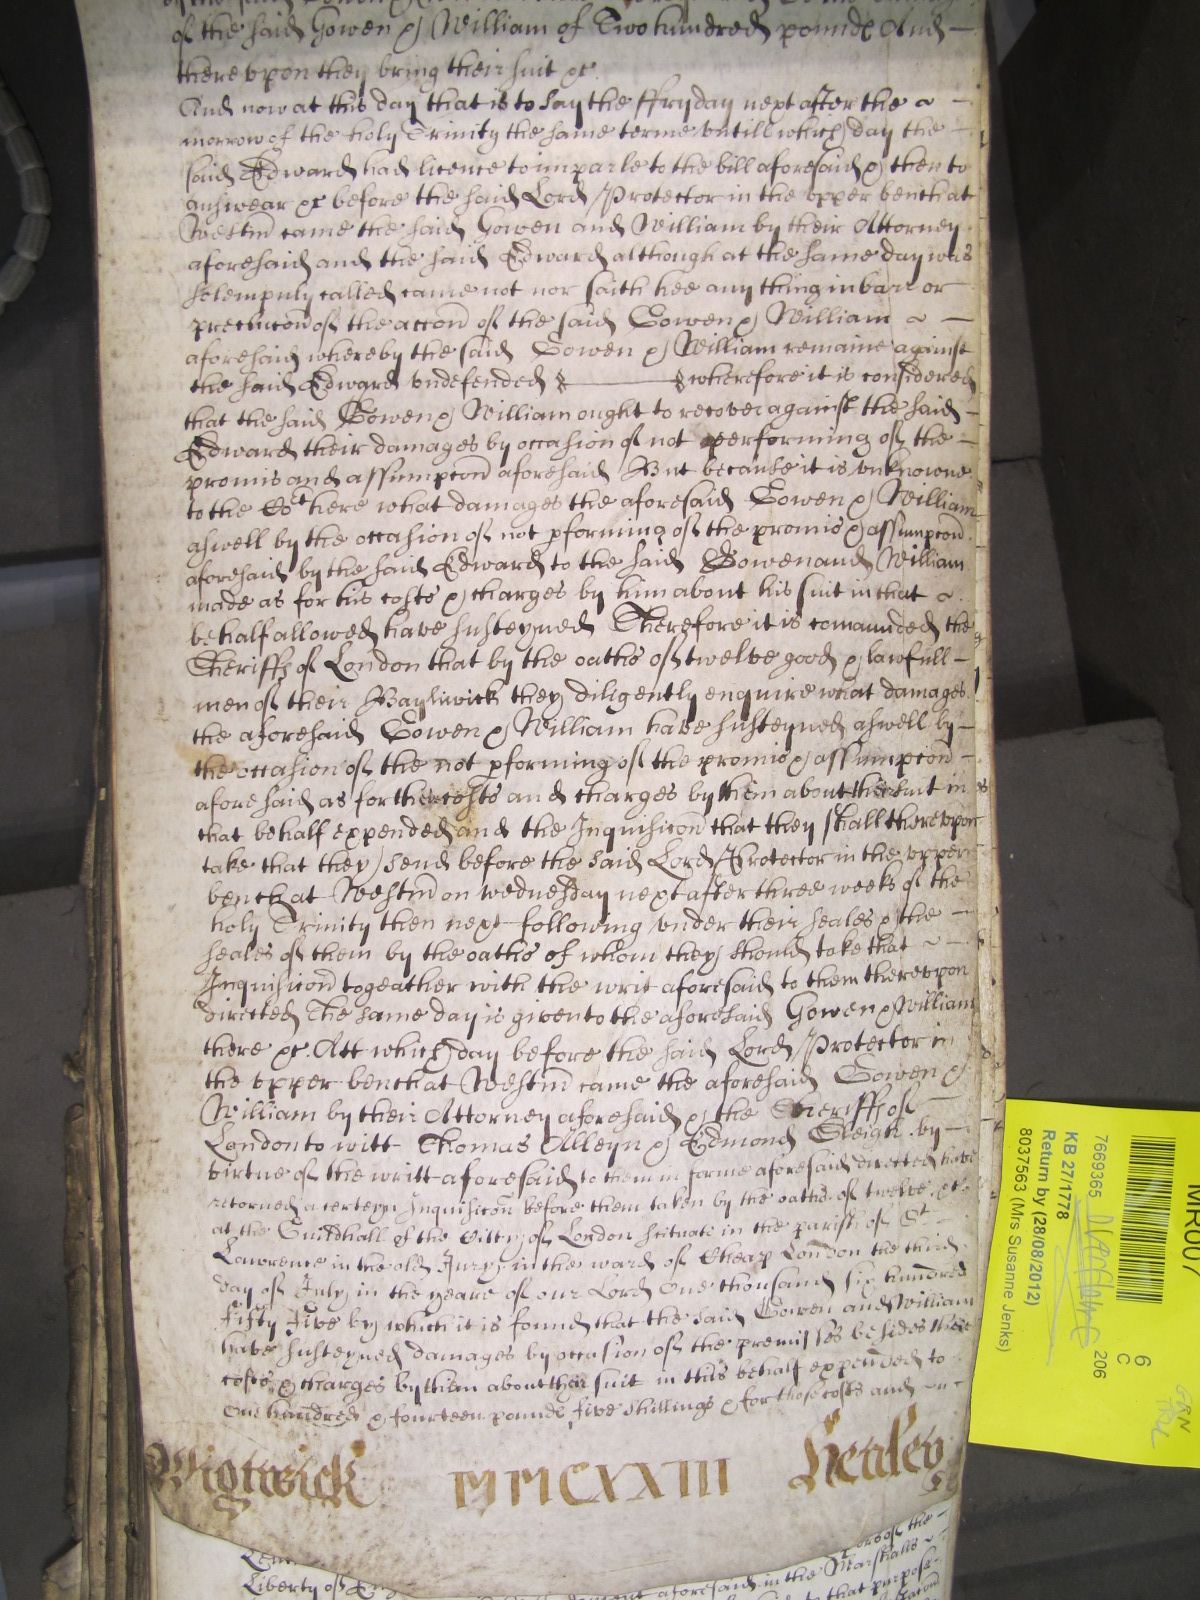 of the said Gowen & William of Two hundred pounds And
thereupon they bring their suit &c.
And now at this day that is to say the ffryday next after the
morrow of the holy Trinity the same terme untill which day the
said Edward had licence to imparle to the bill aforesaid & then to
answear &c before the said Lord Protector in the upper bench at
Westm̃ came the said Gowen and William by their Attorney
aforesaid and the said Edward although at the same day was
solempnly called came not nor saith hee any thing in barr or
preclucon of the accon of the said Gowen & William
aforesaid whereby the said Gowen & William remaine against
the said Edward undefended wherefore it is considered
that the said Gowen & William ought to recover against the said
Edward their damages by occasion of not performing of the
promis and assumpcon aforesaid But because it is unknowne
to the Cot here what damages the aforesaid Gowen & William
aswell by the occasion of not pforming of the promis & assumpcon
aforesaid by the said Edward to the said Gowen and William
made as for his costs & charges by him about his suit in that
behalf allowed have susteyned Therefore it is comaunded the
Sheriffs of London that by the oaths of twelve good & lawfull
men of their Bayliwick they diligently enquire what damages
the aforesaid Gowen & William have susteyned aswell by
the occasion of the not pforming of the promis & assumpcon
aforesaid as for their costs and charges by them about their suit in
that behalf expended and the Inquisicon that they shall thereupon
take that they send before the said Lord Protector in the upper
bench at Westm̃ on wednesday next after three weeks of the
holy Trinity then next following under their seales & the
seales of them by the oaths of whom they should take that
Inquisicon togeather with the writ aforesaid to them thereupon
directed The same day is given to the aforesaid Gowen & William
there &c. Att which day before the said Lord Protector in
the upper bench at Westm̃ came the aforesaid Gowen &
William by their Attorney aforesaid & the Sheriffs of
London to witt Thomas Alleyn & Edmond Sleigh by
virtue of the writt aforesaid to them in forme aforesaid directed have
retorned a certeyn Inquisicon before them taken by the oaths of twelve &c
at the Guildhall of the Citty of London scituate in the parish of St
Lawrence in the old Jury in the ward of Cheap London the third
day of July in the yeare of our Lord One thousand six hundred
fifty five by which it is found that the said Gowen and William
have susteyned damages by occasion of the premisses besides their
costs & charges by them about their suit in this behalf expended to
one hundred & fourteen pounds five shillings & for those costs and
Wightwick MMCXXIII Henley
Liberty of
aforesaid in the Marshalls
to that purpose
MR007
7669365
206
6
C
KB 27/1778
Return by (28/08/2012)
8037563 (Mrs Susanne Jenks)